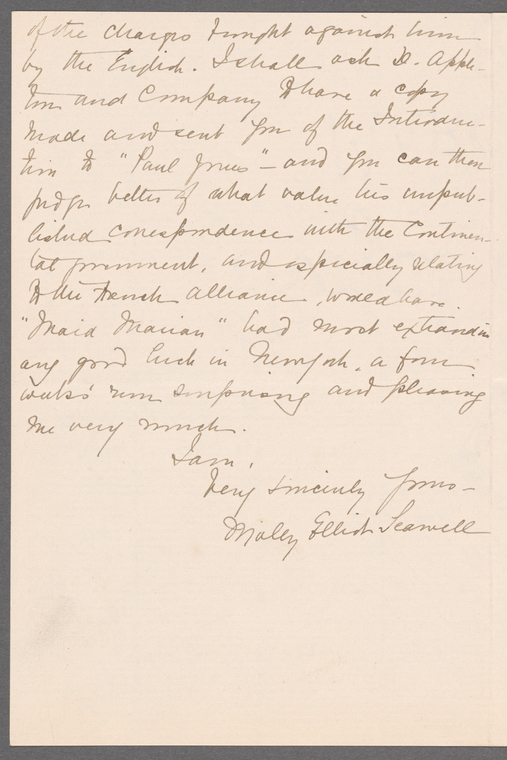 of the charges brought against him
by the English. I shall ask D. Apple-
ton and Company to have a copy
made and sent you of the Introduc-
tion to "Paul Jones" - and you can then
judge better of what value his unpub-
lished correspondence with the Continen-
tal government, and especially relating
to the French alliance, would have.
"Maid Marian" had most extraordin
ary good luck in New York, a four
weeks' run surprising and pleasing
me very much.
I am,
Very sincerely yours -
Molly Elliot Seawell